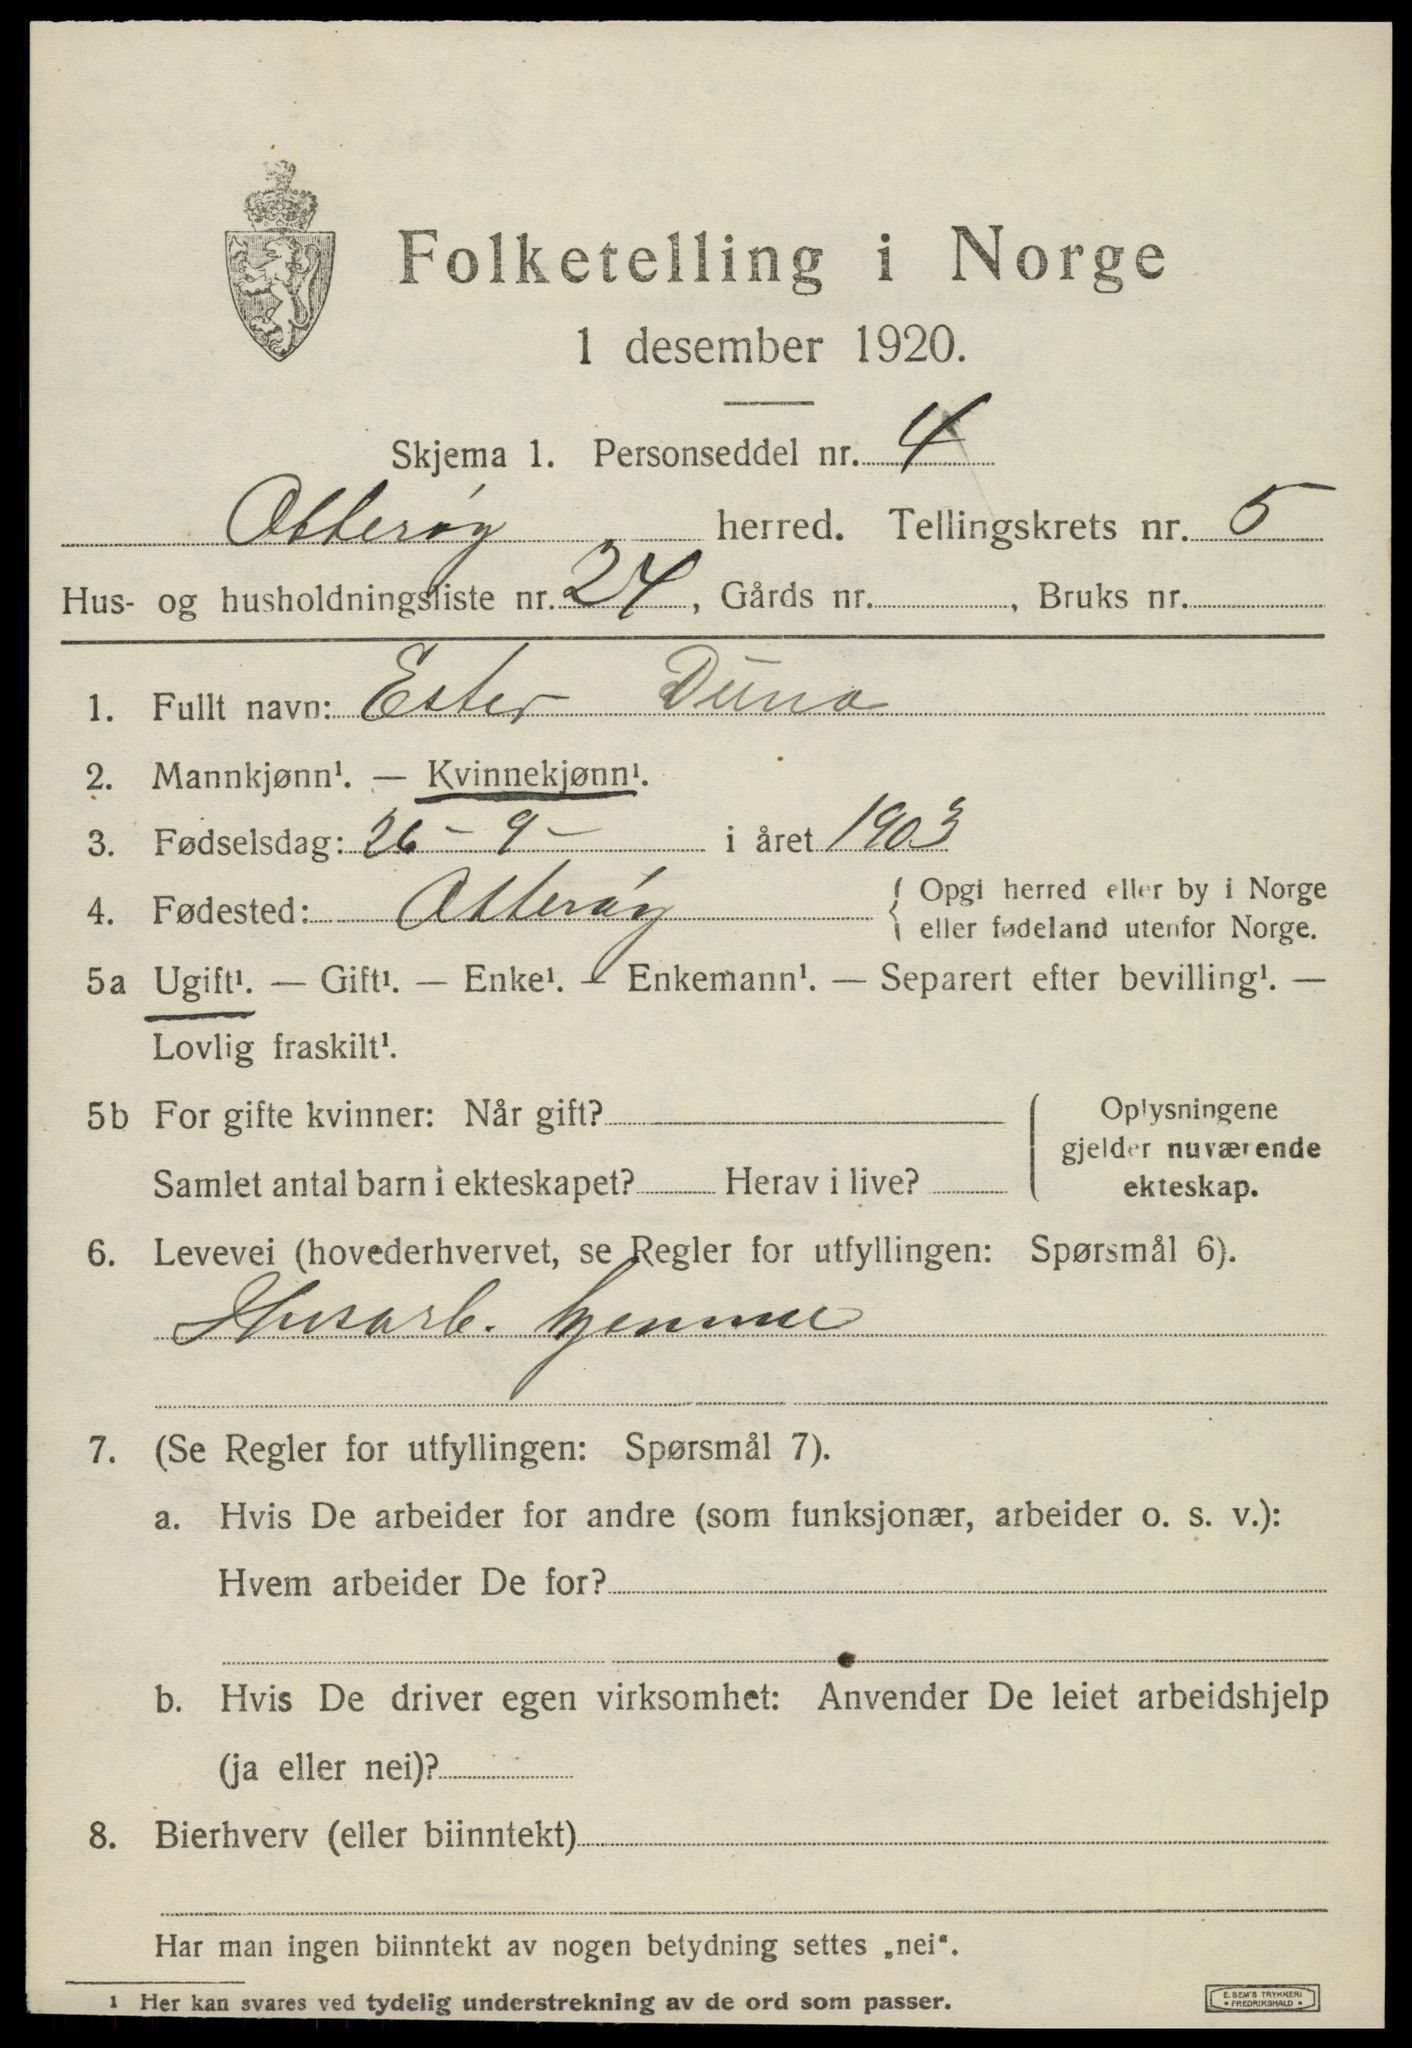 Folketelling i Norge
1 desember 1920.
Skjema 1. Personseddel nr. 4
Otterøy herred. Tellingskrets nr. 5
Hus- og husholdningsliste nr. 24, Gårds nr. , Bruks nr.
1. Fullt navn: Ester Duna
2. Mannkjønn¹. — Kvinnekjønn¹.
3. Fødselsdag: 26 - 9 - i året 1903
4. Fødested: Otterøy { Opgi herred eller by i Norge
eller fødeland utenfor Norge.
5a Ugift¹. — Gift¹. — Enke¹. — Enkemann¹. — Separert efter bevilling¹. —
Lovlig fraskilt¹.
5b For gifte kvinner: Når gift?
Samlet antal barn i ekteskapet? Herav i live?
Oplysningene
gjelder nuværende
ekteskap.
6. Levevei (hovederhvervet, se Regler for utfyllingen: Spørsmål 6).
Husarb. hjemme
7. (Se Regler for utfyllingen: Spørsmål 7).
a. Hvis De arbeider for andre (som funksjonær, arbeider o. s. v.):
Hvem arbeider De for?
b. Hvis De driver egen virksomhet: Anvender De leiet arbeidshjelp
(ja eller nei)?
8. Bierhverv (eller biinntekt)
Har man ingen biinntekt av nogen betydning settes „nei“.
1 Her kan svares ved tydelig understrekning av de ord som passer.
E. SEM'S TRYKKERI
FREDRIKSHALD